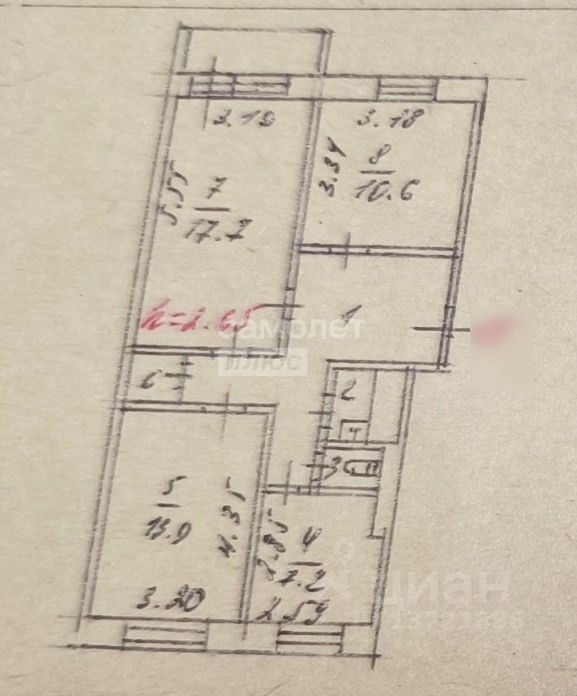 3.19
3.18
5.55
7
17.7
3.34
8
10.6
h=2.65
1
самолет
плюс
6
2
3
5
13.9
4.35
3.20
2.85
4
7.2
2.59
циан